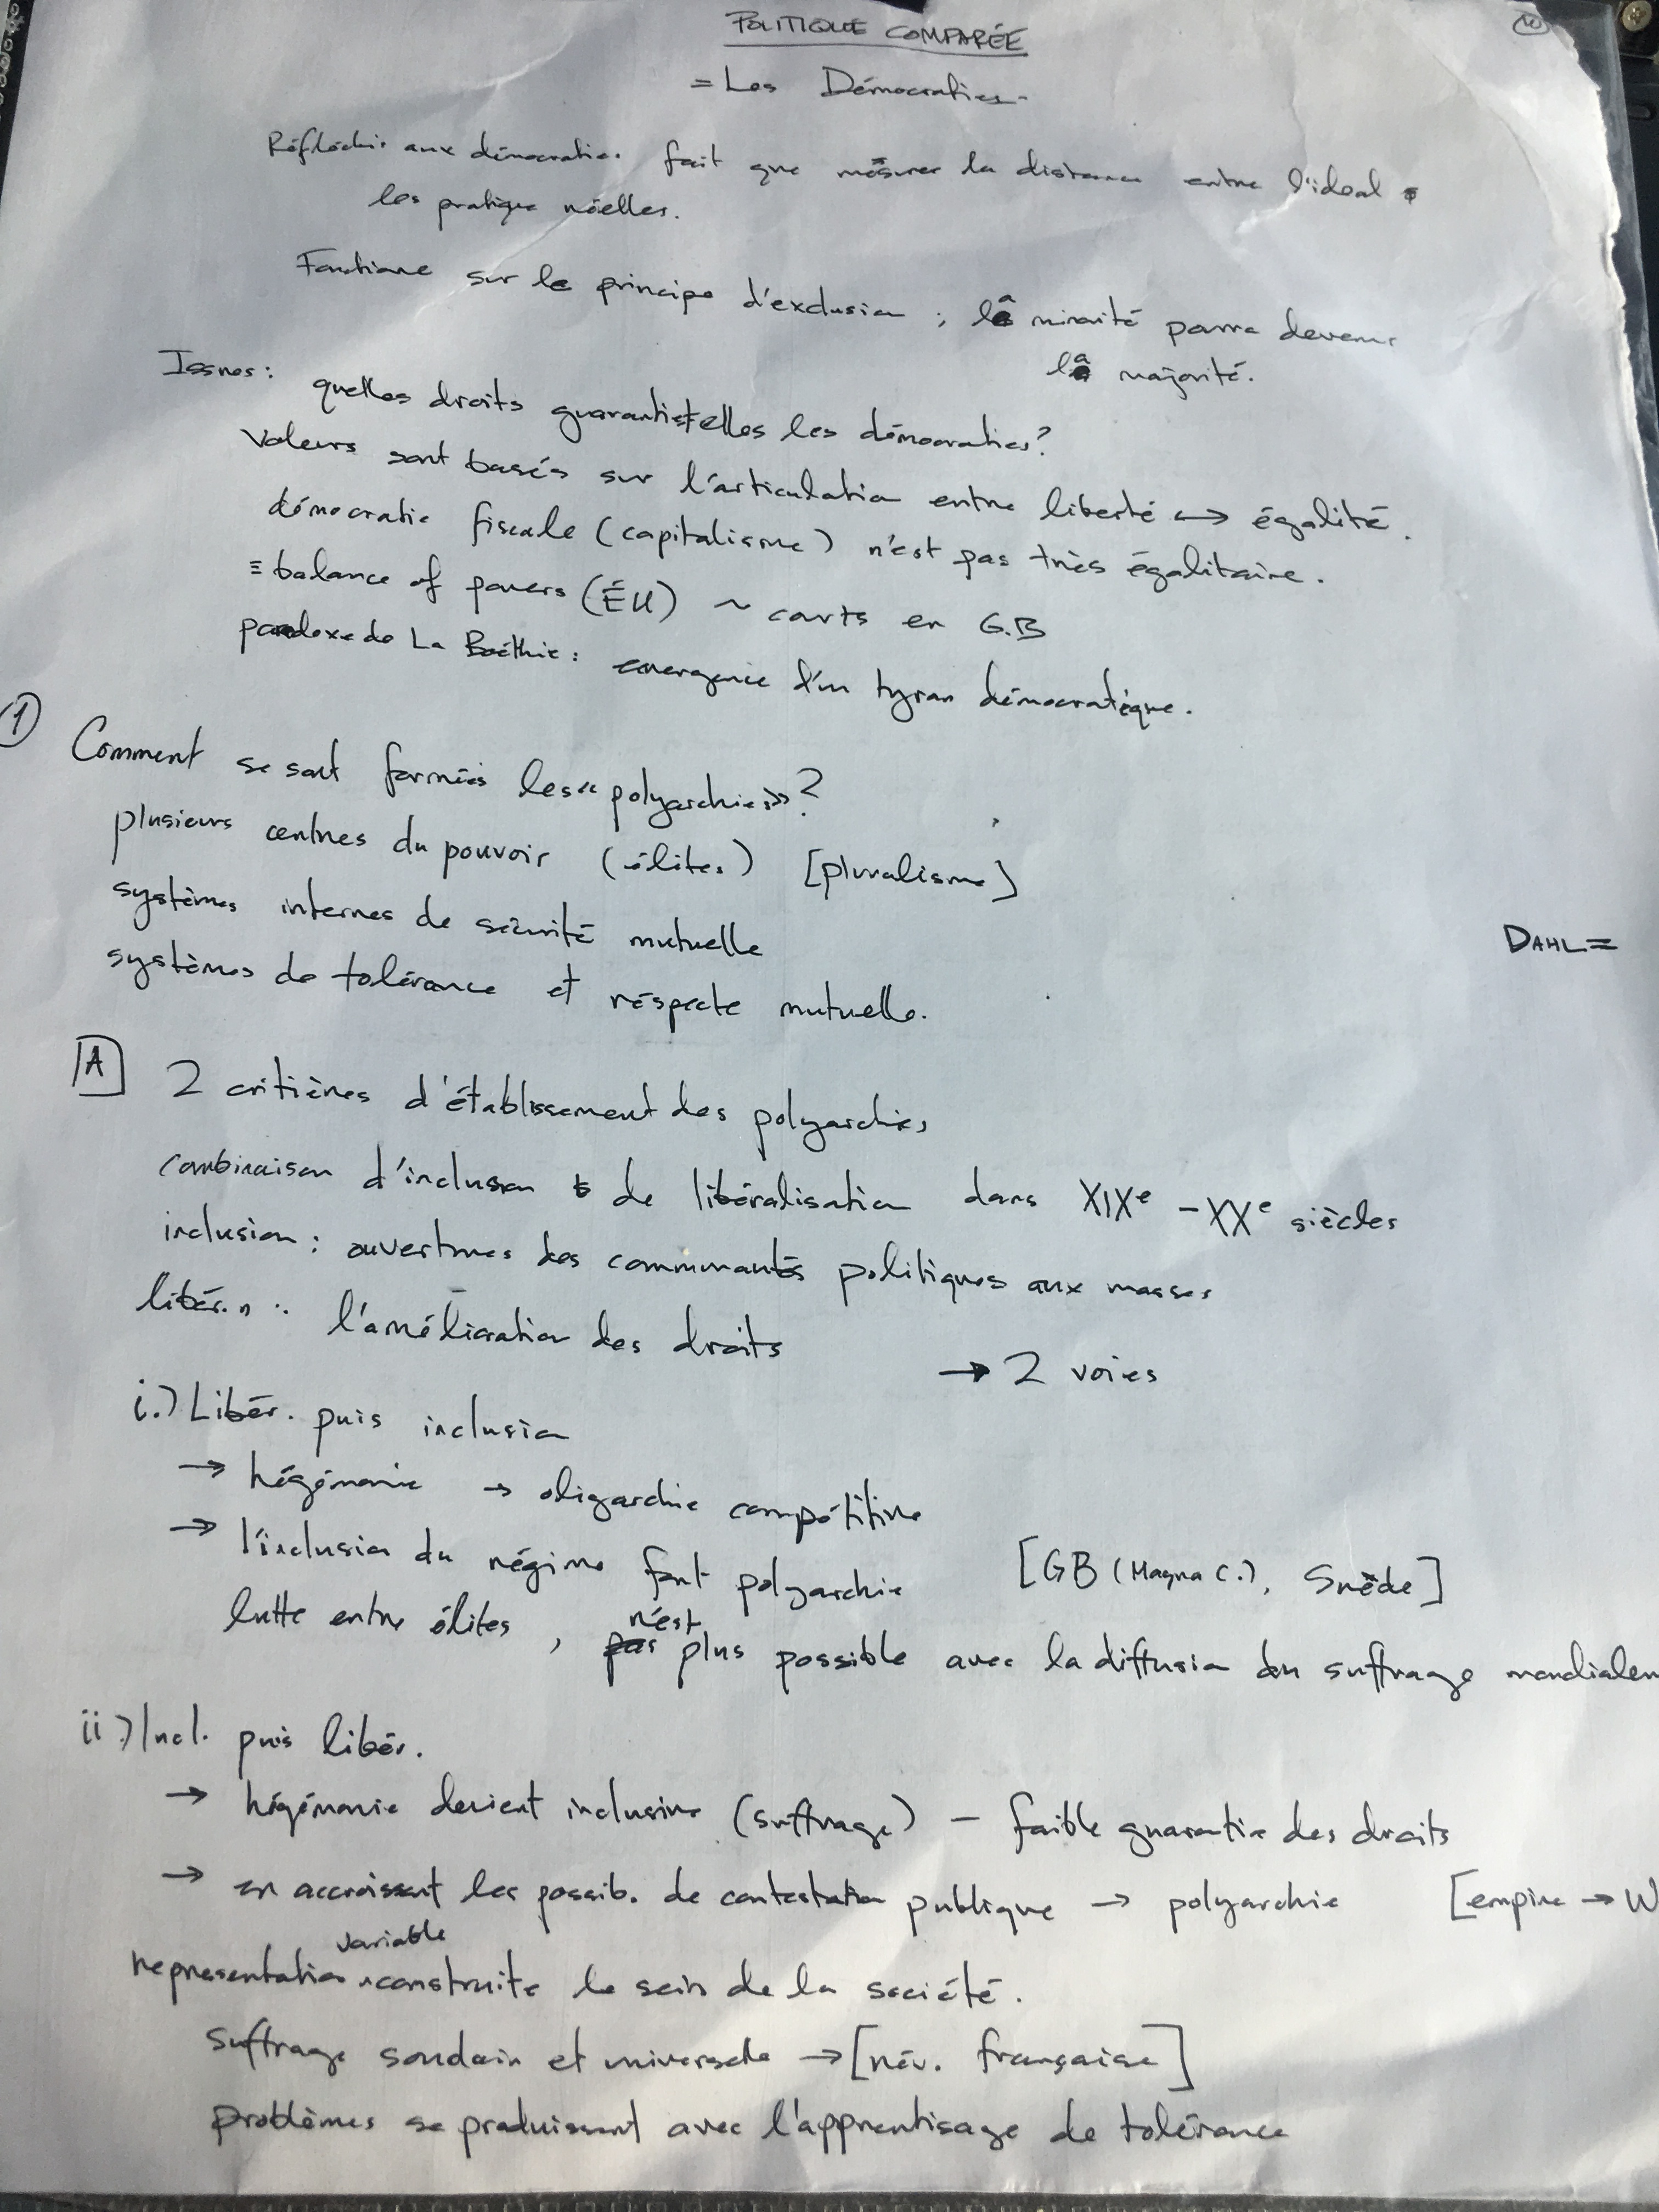 10
POLITIQUE COMPARÉE
= Les Démocraties -
Réfléchir aux démocraties fait que mésurer la distance entre l'ideal &
les pratique réelles.
Fonctione sur le principe d'exclusion ; la minorité pourra devenir
la majorité.
Issues: quelles droits guarantistelles les démocraties?
Valeurs sont basés sur l'articulation entre liberté ↔ égalité.
démocratie fiscale (capitalisme) n'est pas très égalitaire.
≡ balance of powers (ÉU) ~ courts en G.B
paradoxe de La Boéthie: emergence d'un tyran démocratique.
① Comment se sont formées les « polyarchies »?
plusieurs centres du pouvoir (élites) [pluralisme]
systèmes internes de sécurité mutuelle
DAHL =
systèmes de tolérance et réspecte mutuelle.
A 2 critières d'établissement des polyarchies
combinaison d'inclusion & de libéralisation dans XIXe - XXe siècles
inclusion: ouvertures des communautés politiques aux masses
libér.n : l'amélioration des droits
→ 2 voies
i.) Libér. puis inclusion
→ hégémonie → oligarchie compétitive
→ l'inclusion du régime font polyarchie [GB (Magna C.), Suède]
lutte entre élites, n'est plus possible avec la diffusion du suffrage mondialem
ii) Incl. puis libér.
→ hégémonie devient inclusive (suffrage) - faible guarantie des droits
→ en accroissent les possib. de contestation publique → polyarchie [empire → W
representation variable construite le sein de la société.
suffrage soudain et universele → [rév. française]
problèmes se produissent avec l'apprentisage de tolérance